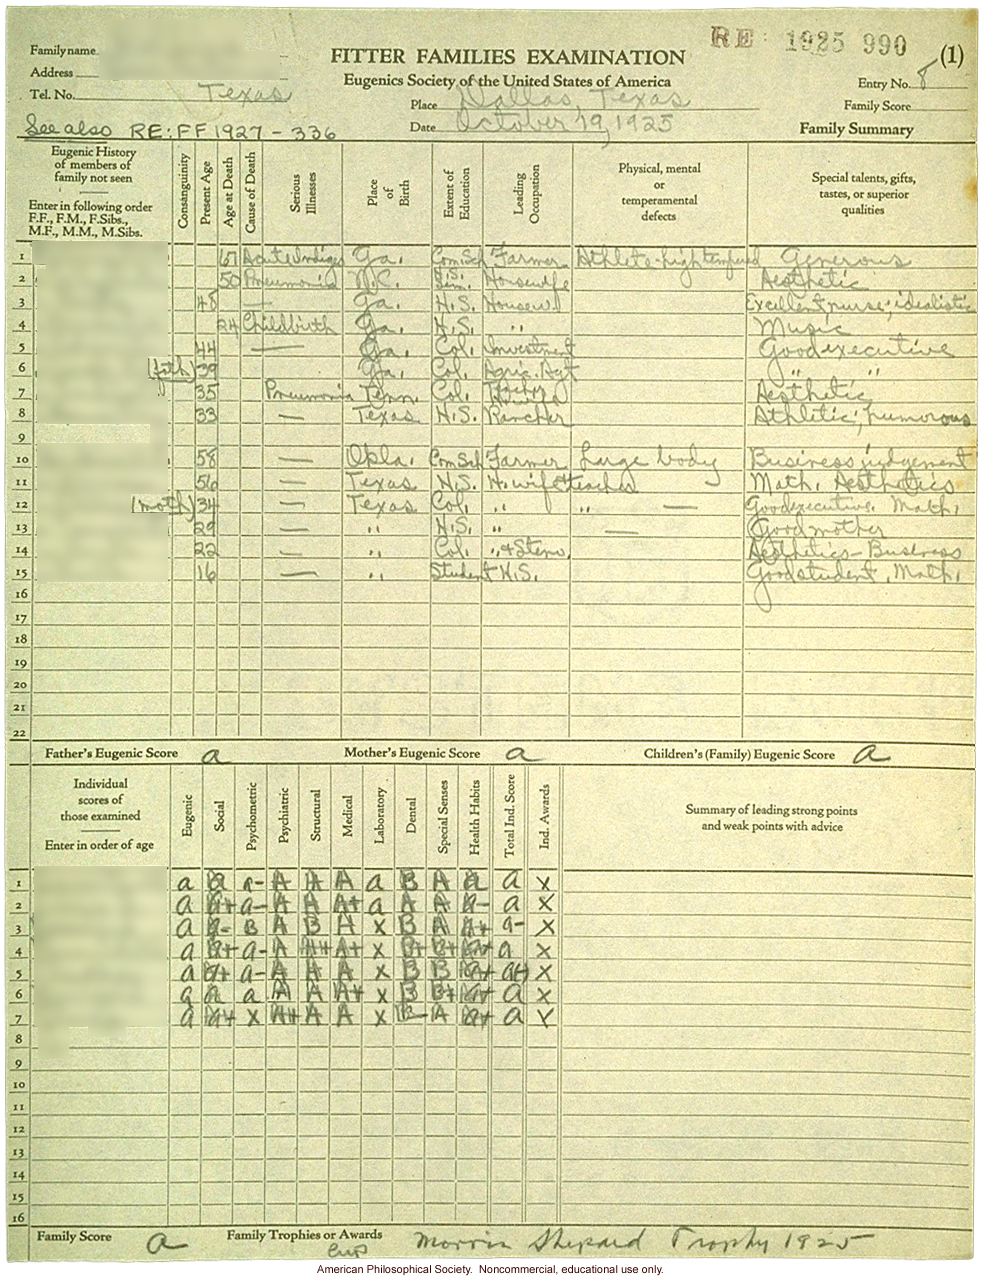 RE: 1925 990
(1)
Family name
FITTER FAMILIES EXAMINATION
Address
Eugenics Society of the United States of America
Entry No. 8
Tel. No. Texas
Place Dallas, Texas
Family Score
See also RE:FF1927-336
Date October 19, 1925
Family Summary
Eugenic History
of members of
family not seen
Enter in following order
F.F., F.M., F.Sibs.,
M.F., M.M., M.Sibs.
Consanguinity
Present Age
Age at Death
Cause of Death
Serious
Illnesses
Place
of
Birth
Extent of
Education
Leading
Occupation
Physical, mental
or
temperamental
defects
Special talents, gifts,
tastes, or superior
qualities
1 67 Acute Indiges Ga. Com Sch Farmer Athlete-high tempered Generous
2 50 Pneumonia N.C. Sem. Housewife Aesthetic
3 48 — Ga. H.S. Housewf Excellent nurse; idealistic
4 24 Childbirth Ga. H.S. " Music
5 44 — Ga. Col. Investment Good executive
6 (fath) 39 Ga. Col. Agric. Agt " "
7 35 Pneumonia Tenn. Col. Teacher Aesthetic
8 33 — Texas H.S. Rancher Athletic, humorous
9
10 58 — Okla. Com Sch Farmer Large body Business judgement
11 56 — Texas H.S. H. wife teacher Math, Aesthetics
12 (moth) 34 — Texas Col. " " — Good executive, Math.
13 29 — " H.S. " — Good mother
14 22 — " Col. " & Steno. Aesthetics-Business
15 16 — " Student H.S. Good student, Math.
16
17
18
19
20
21
22
Father's Eugenic Score a
Mother's Eugenic Score a
Children's (Family) Eugenic Score a
Individual
scores of
those examined
Enter in order of age
Eugenic
Social
Psychometric
Psychiatric
Structural
Medical
Laboratory
Dental
Special Senses
Health Habits
Total Ind. Score
Ind. Awards
Summary of leading strong points
and weak points with advice
1 a a a- A A A a B A a a x
2 a a+ a- A A A+ a A A a- a x
3 a a- B A B A x B A A+ a- x
4 a a+ a- A A+ A+ x B+ B+ a+ a x
5 a a+ a- A A A x B B a+ a+ x
6 a a a A A A+ x B B+ a+ a x
7 a a+ x A+ A A x B- A a+ a x
8
9
10
11
12
13
14
15
16
Family Score a
Family Trophies or Awards Morris Shepard Trophy 1925
Cup
American Philosophical Society. Noncommercial, educational use only.